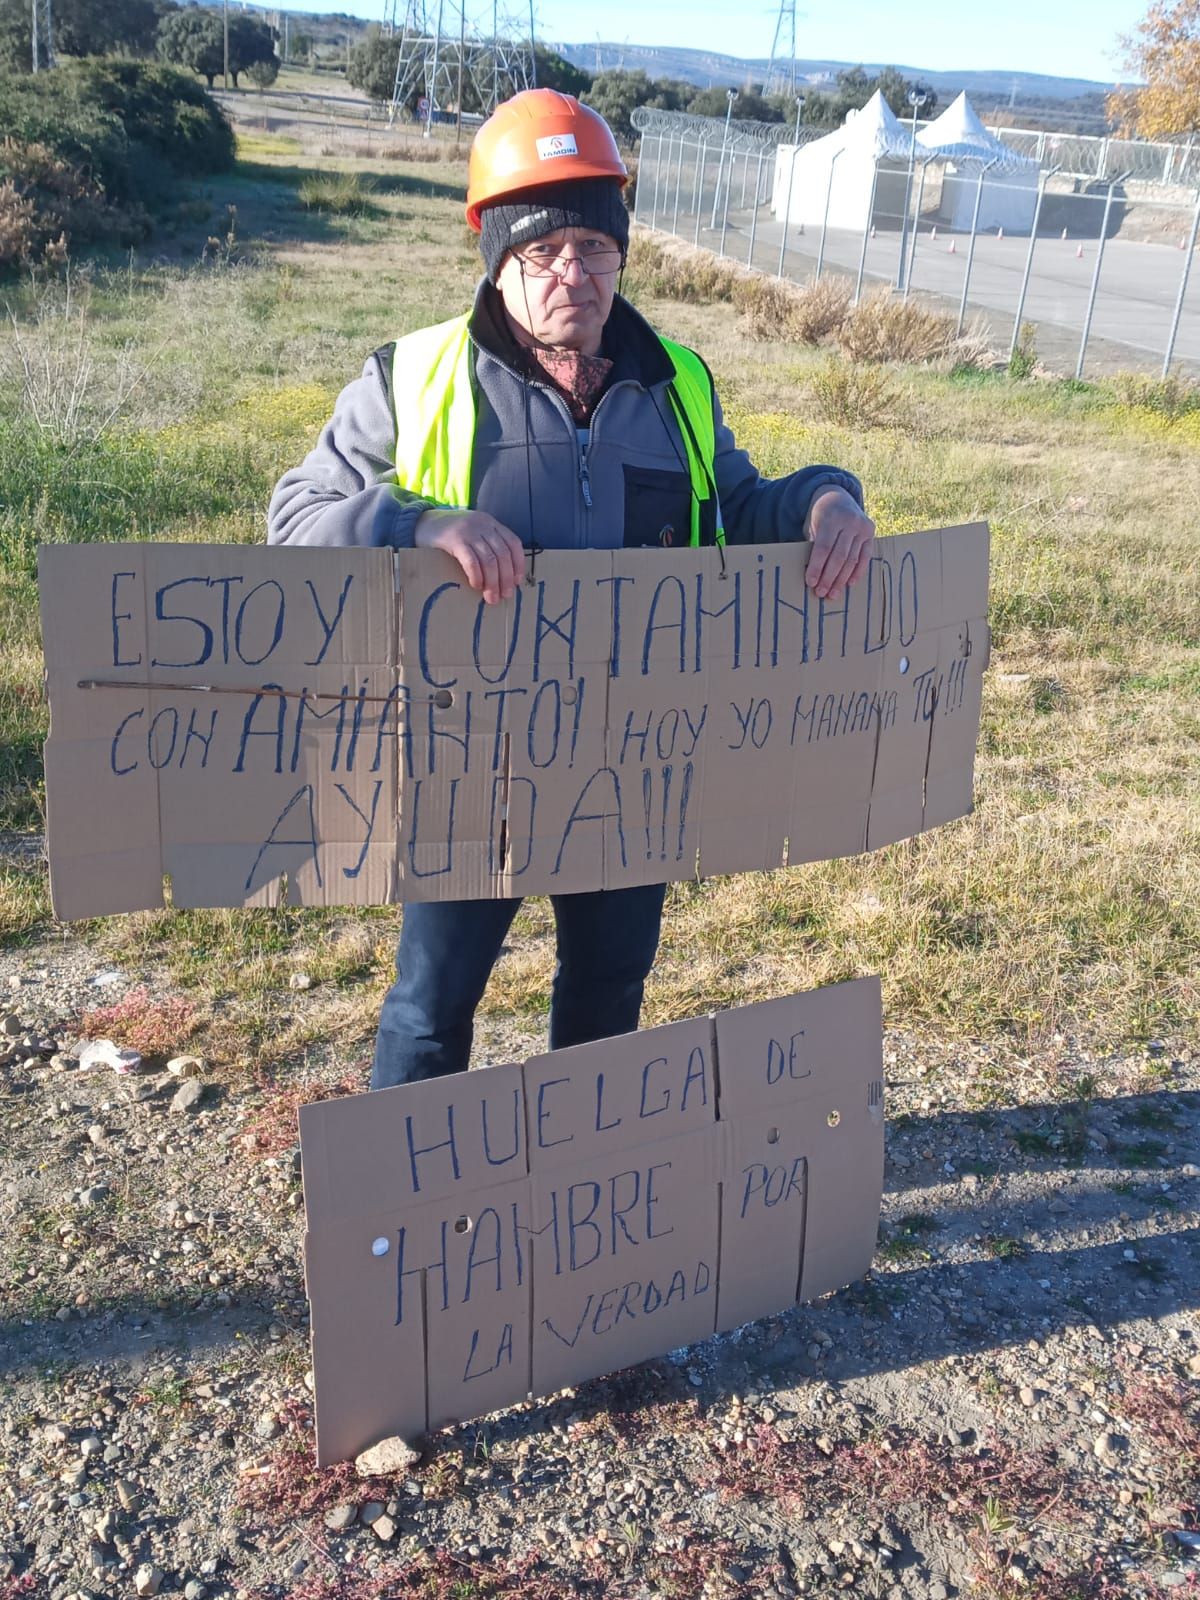 TAMOIN
ESTOY CONTAMINADO
CON AMIANTO! HOY YO MANANA TU!!!
AYUDA!!!
HUELGA DE
HAMBRE POR
LA VERDAD